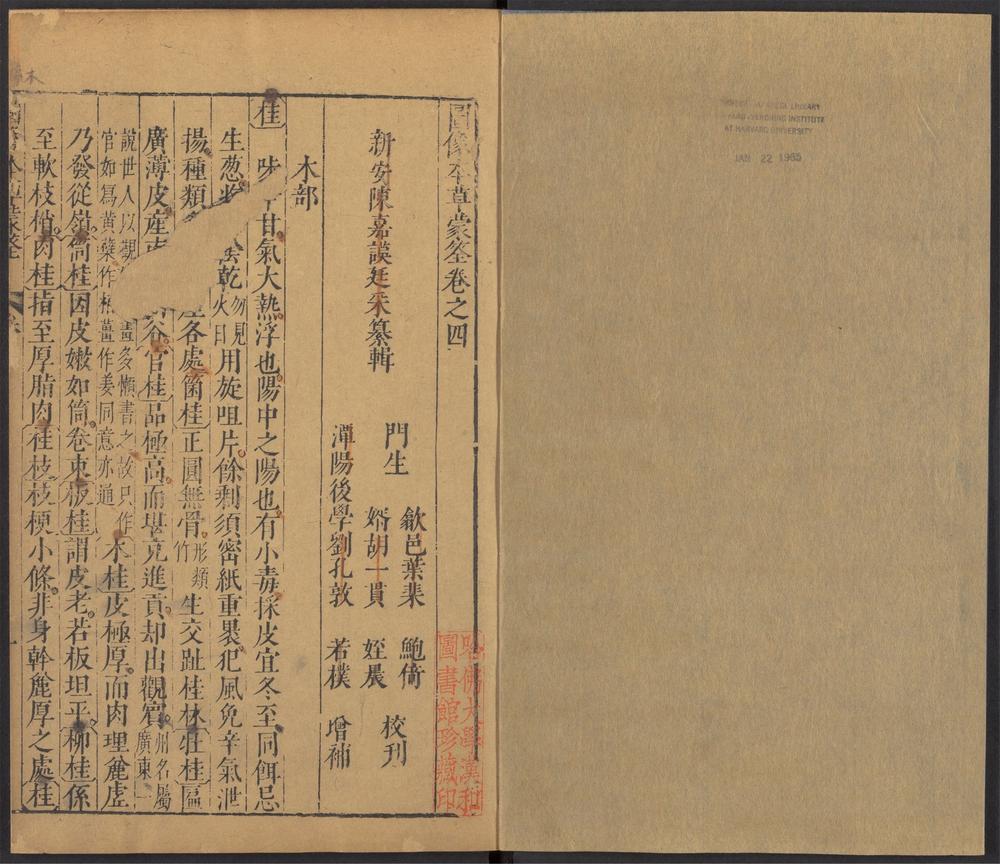 圖像本草蒙筌卷之四
新安陳嘉謨廷采纂輯
歙邑葉棐 鮑倚
門生 校刊
婿胡一貫 姪晨
潭陽後學劉孔敦 若樸 增補
木部
桂 味甘氣大熱浮也陽中之陽也有小毒採皮宜冬至同餌忌
生葱 乾勿見火日用旋咀片餘剩須密紙重裹犯風免辛氣泄
揚種類 各處箘桂正圓無骨形類竹生交趾桂林牡桂匾
廣薄皮產 谷官桂品極高而堪充進貢却出觀賓州名屬廣東一
說世人以觀 畫多懶書之故只作
官如爲黃蘗作 薑作姜同意亦通 木桂皮極厚而肉理麄虛
乃發從嶺筒桂因皮嫩如筒卷束板桂謂皮老若板坦平柳桂係
至軟枝梢肉桂指至厚脂肉桂枝枝梗小條非身幹麄厚之處桂
哈佛大學漢和
圖書館珍藏印
LIBRARY
INSTITUTE
AT HARVARD UNIVERSITY
JAN 22 1965